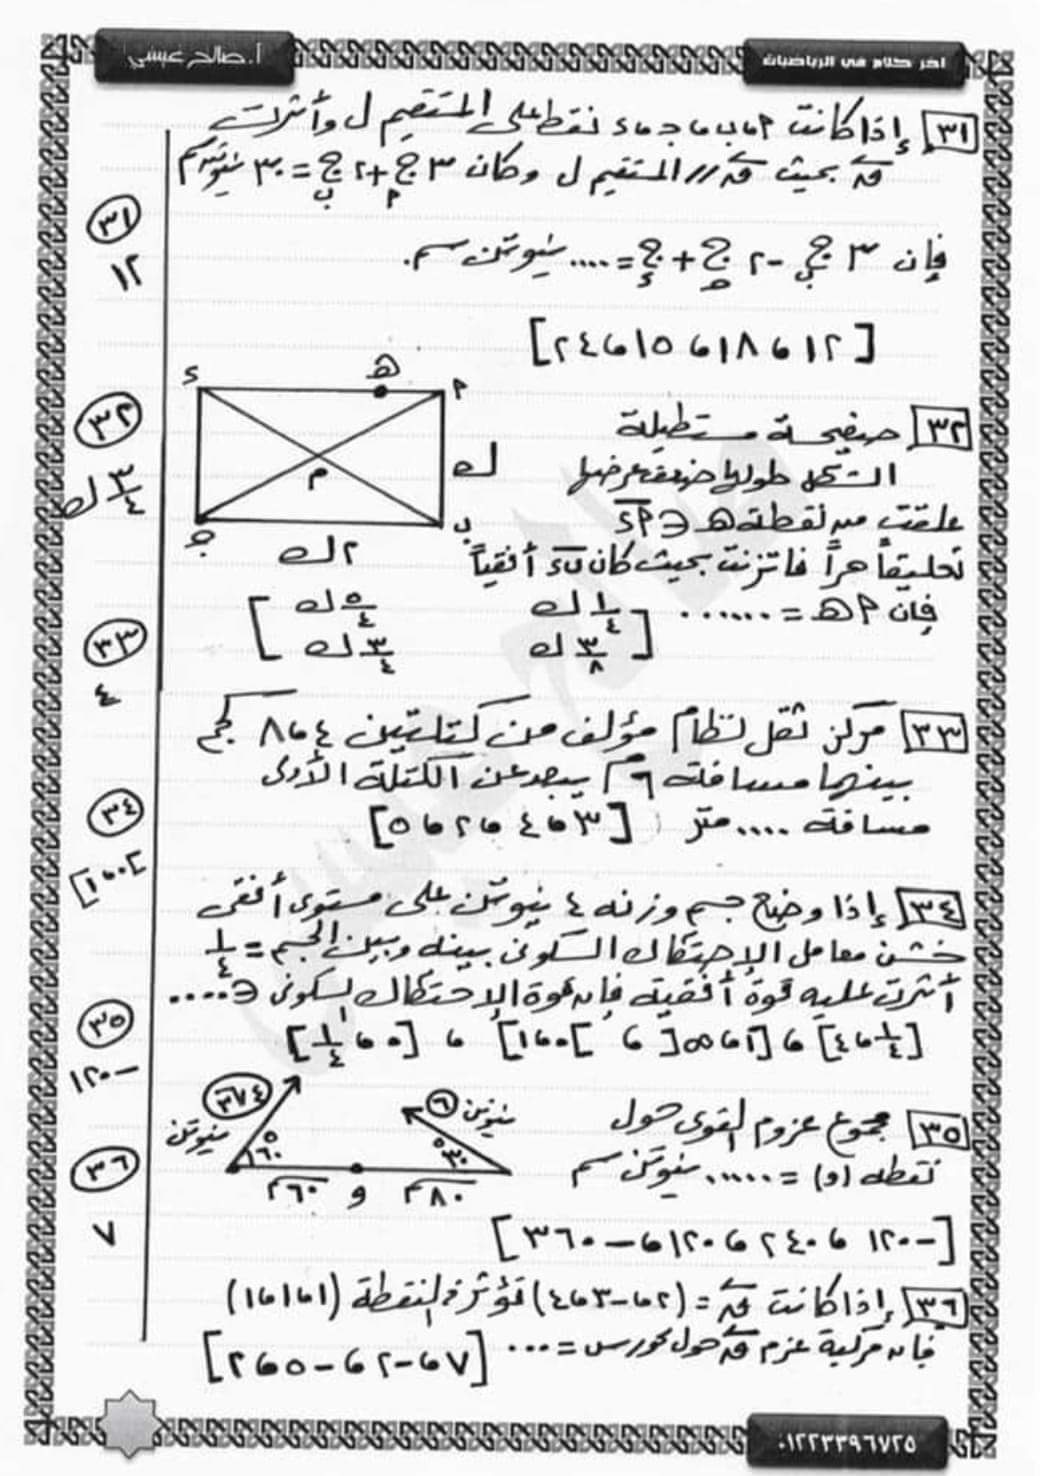 آخر كلام في الرياضيات
أ. صالح عيسي
٣١ إذا كانت P، ب، ج، ء نقط على المستقيم ل وأثرت
ق بحيث ق // المستقيم ل وكان ٣ ج P + ٢ ج ب = ٣٠ نيوتن سم
فإن ٣ ج ب - ٢ ج ج + ج ء = .... نيوتن سم.
[١٢ ، ١٨ ، ١٥ ، ٢٤]
٣١
١٢
٣٢ صفيحة مستطيلة
الشكل طولها ضعف عرضها
علقت من نقطة ه ∈ P ء
تعليقاً حراً فاتزنت بحيث كان ب ء أفقياً
فإن P ه = .......
[١/٤ ل ٥/٤ ل
٣/٨ ل ٣/٤ ل]
ء ه P
ل
م
ج ب
٢ ل
٣٢
٣/٤ ل
٣٣ مركز ثقل نظام مؤلف من كتلتين ٤ ، ٨ كجم
بينهما مسافة ٦ م يبعد عن الكتلة الأولى
مسافة .... متر [٣ ، ٤ ، ٢ ، ٥]
٣٣
٤
٣٤ إذا وضع جسم وزنه ٤ نيوتن على مستوى أفقى
خشن معامل الإحتكاك السكونى بينه وبين الجسم = ١/٤
أثرت عليه قوة أفقية فإن قوة الإحتكاك السكونى ∈ ....
[١/٤ ، ٤] ، [١ ، ∞[ ، ]٠ ، ١] ، [٠ ، ١/٤]
٣٤
]٠ ، ١]
٣٥ مجموع عزوم القوى حول
نقطة (و) = ...... نيوتن سم
[-١٢٠ ، ٢٤٠ ، ١٢٠ ، -٣٦٠]
٤√٣ نيوتن
٦ نيوتن
٦٠° ٣٠°
٦٠ سم و ٨٠ سم
٣٥
-١٢٠
٣٦ إذا كانت ق = (٢ ، -٣ ، ٤) تؤثر فى النقطة (١ ، ١ ، ١)
فإن مركبة عزم ق حول محور س = ...
[٧ ، -٢ ، -٥ ، ٢]
٣٦
٧
٠١٢٢٣٣٩٦٧٢٥